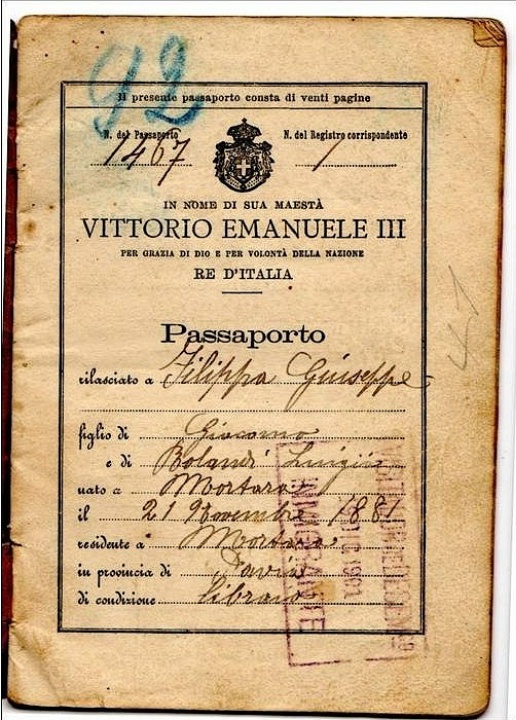 92
Il presente passaporto consta di venti pagine
N. del Passaporto N. del Registro corrispondente
1467 1
IN NOME DI SUA MAESTÀ
VITTORIO EMANUELE III
PER GRAZIA DI DIO E PER VOLONTÀ DELLA NAZIONE
RE D'ITALIA
Passaporto
rilasciato a Filippa Giuseppe
figlio di Giacomo
e di Bolandi Luigia
nato a Mortara
il 21 Novembre 1881
residente a Mortara
in provincia di Pavia
di condizione libraio
41